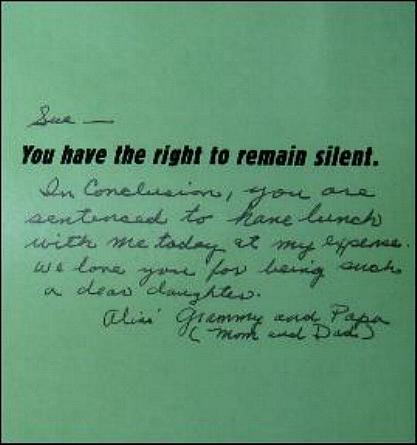 Sue —
You have the right to remain silent.
In Conclusion, you are
sentenced to have lunch
with me today at my expense.
We love you for being such
a dear daughter.
Alias Grammy and Papa
(Mom and Dad)